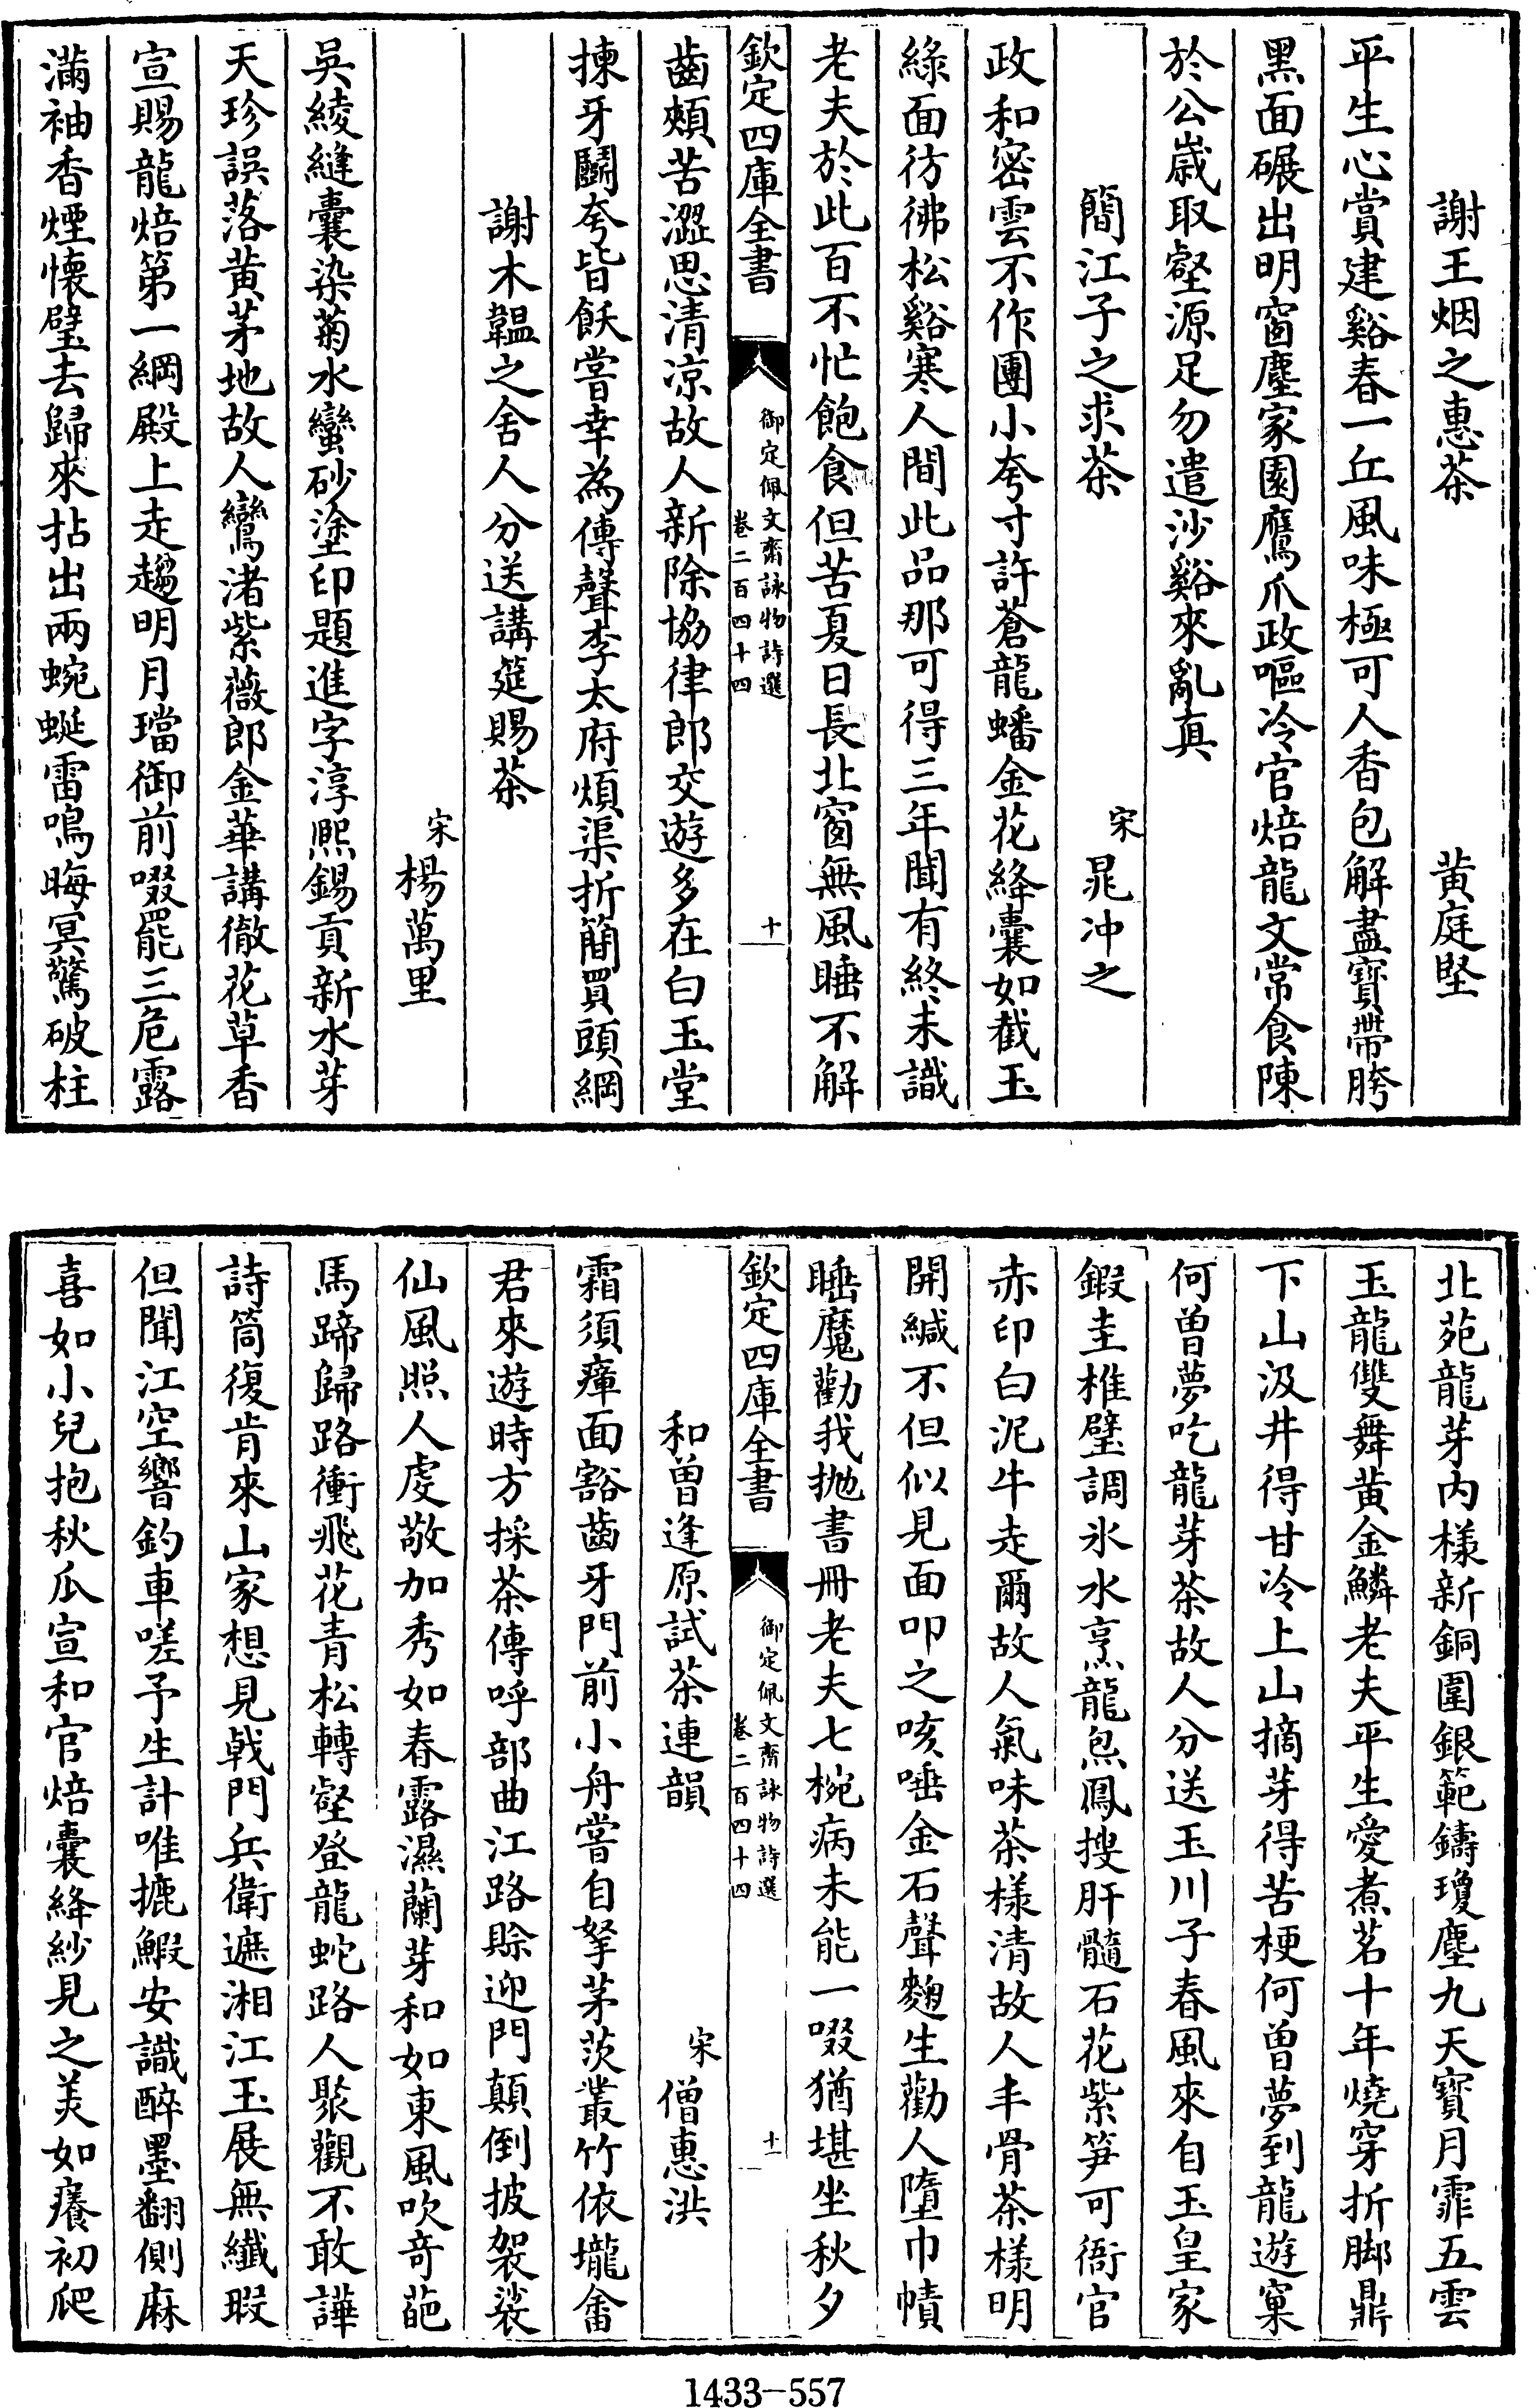 謝王烟之惠茶　黄庭堅
平生心賞建谿春一丘風味極可人香包解盡寳帶胯
黑面碾出明窗塵家園鷹爪政嘔冷官焙龍文常食陳
於公歳取壑源足勿遣沙谿來亂真
簡江子之求茶　宋晁冲之
政和密雲不作團小夸寸許蒼龍蟠金花絳囊如截玉
緑面彷彿松谿寒人間此品那可得三年聞有終未識
老夫於此百不忙飽食但苦夏日長北窗無風睡不解
欽定四庫全書　御定佩文齋詠物詩選　卷二百四十四　十
齒頰苦澀思清凉故人新除協律郎交遊多在白玉堂
揀牙鬭夸皆飫嘗幸為傳聲李太府煩渠折簡買頭綱
謝木韞之舍人分送講筵賜茶
宋楊萬里
吳綾縫囊染菊水蠻砂塗印題進字淳熙錫貢新水芽
天珍誤落黄茅地故人鸞渚紫薇郎金華講徹花草香
宣賜龍焙第一綱殿上走趨明月璫御前啜罷三危露
滿袖香煙懷璧去歸來拈出兩蜿蜒雷鳴晦冥驚破柱
北苑龍芽内樣新銅圍銀範鑄瓊塵九天寳月霏五雲
玉龍雙舞黄金鱗老夫平生愛煮茗十年燒穿折脚鼎
下山汲井得甘冷上山摘芽得苦梗何曾夢到龍遊窠
何曽夢吃龍芽茶故人分送玉川子春風來自玉皇家
鍜圭椎璧調氷水烹龍炰鳳搜肝髓石花紫笋可衙官
赤印白泥牛走爾故人氣味茶樣清故人丰骨茶樣明
開緘不但似見面叩之咳唾金石聲麴生勸人墮巾幘
睡魔勸我抛書冊老夫七椀病未能一啜猶堪坐秋夕
欽定四庫全書　御定佩文齋詠物詩選　卷二百四十四　十一
和曽逢原試茶連韻　宋僧惠洪
霜須瘴面豁齒牙門前小舟嘗自拏茅茨叢竹依壠畬
君來遊時方採茶傳呼部曲江路賒迎門顛倒披袈裟
仙風照人虔敬加秀如春露濕蘭芽和如東風吹奇葩
馬蹄歸路衝飛花青松轉壑登龍蛇路人聚觀不敢譁
詩筒復肯來山家想見戟門兵衛遮湘江玉展無纖瑕
但聞江空響釣車嗟予生計唯摝鰕安識醉墨翻側麻
喜如小兒抱秋瓜宣和官焙囊絳紗見之美如癢初爬
1433-557